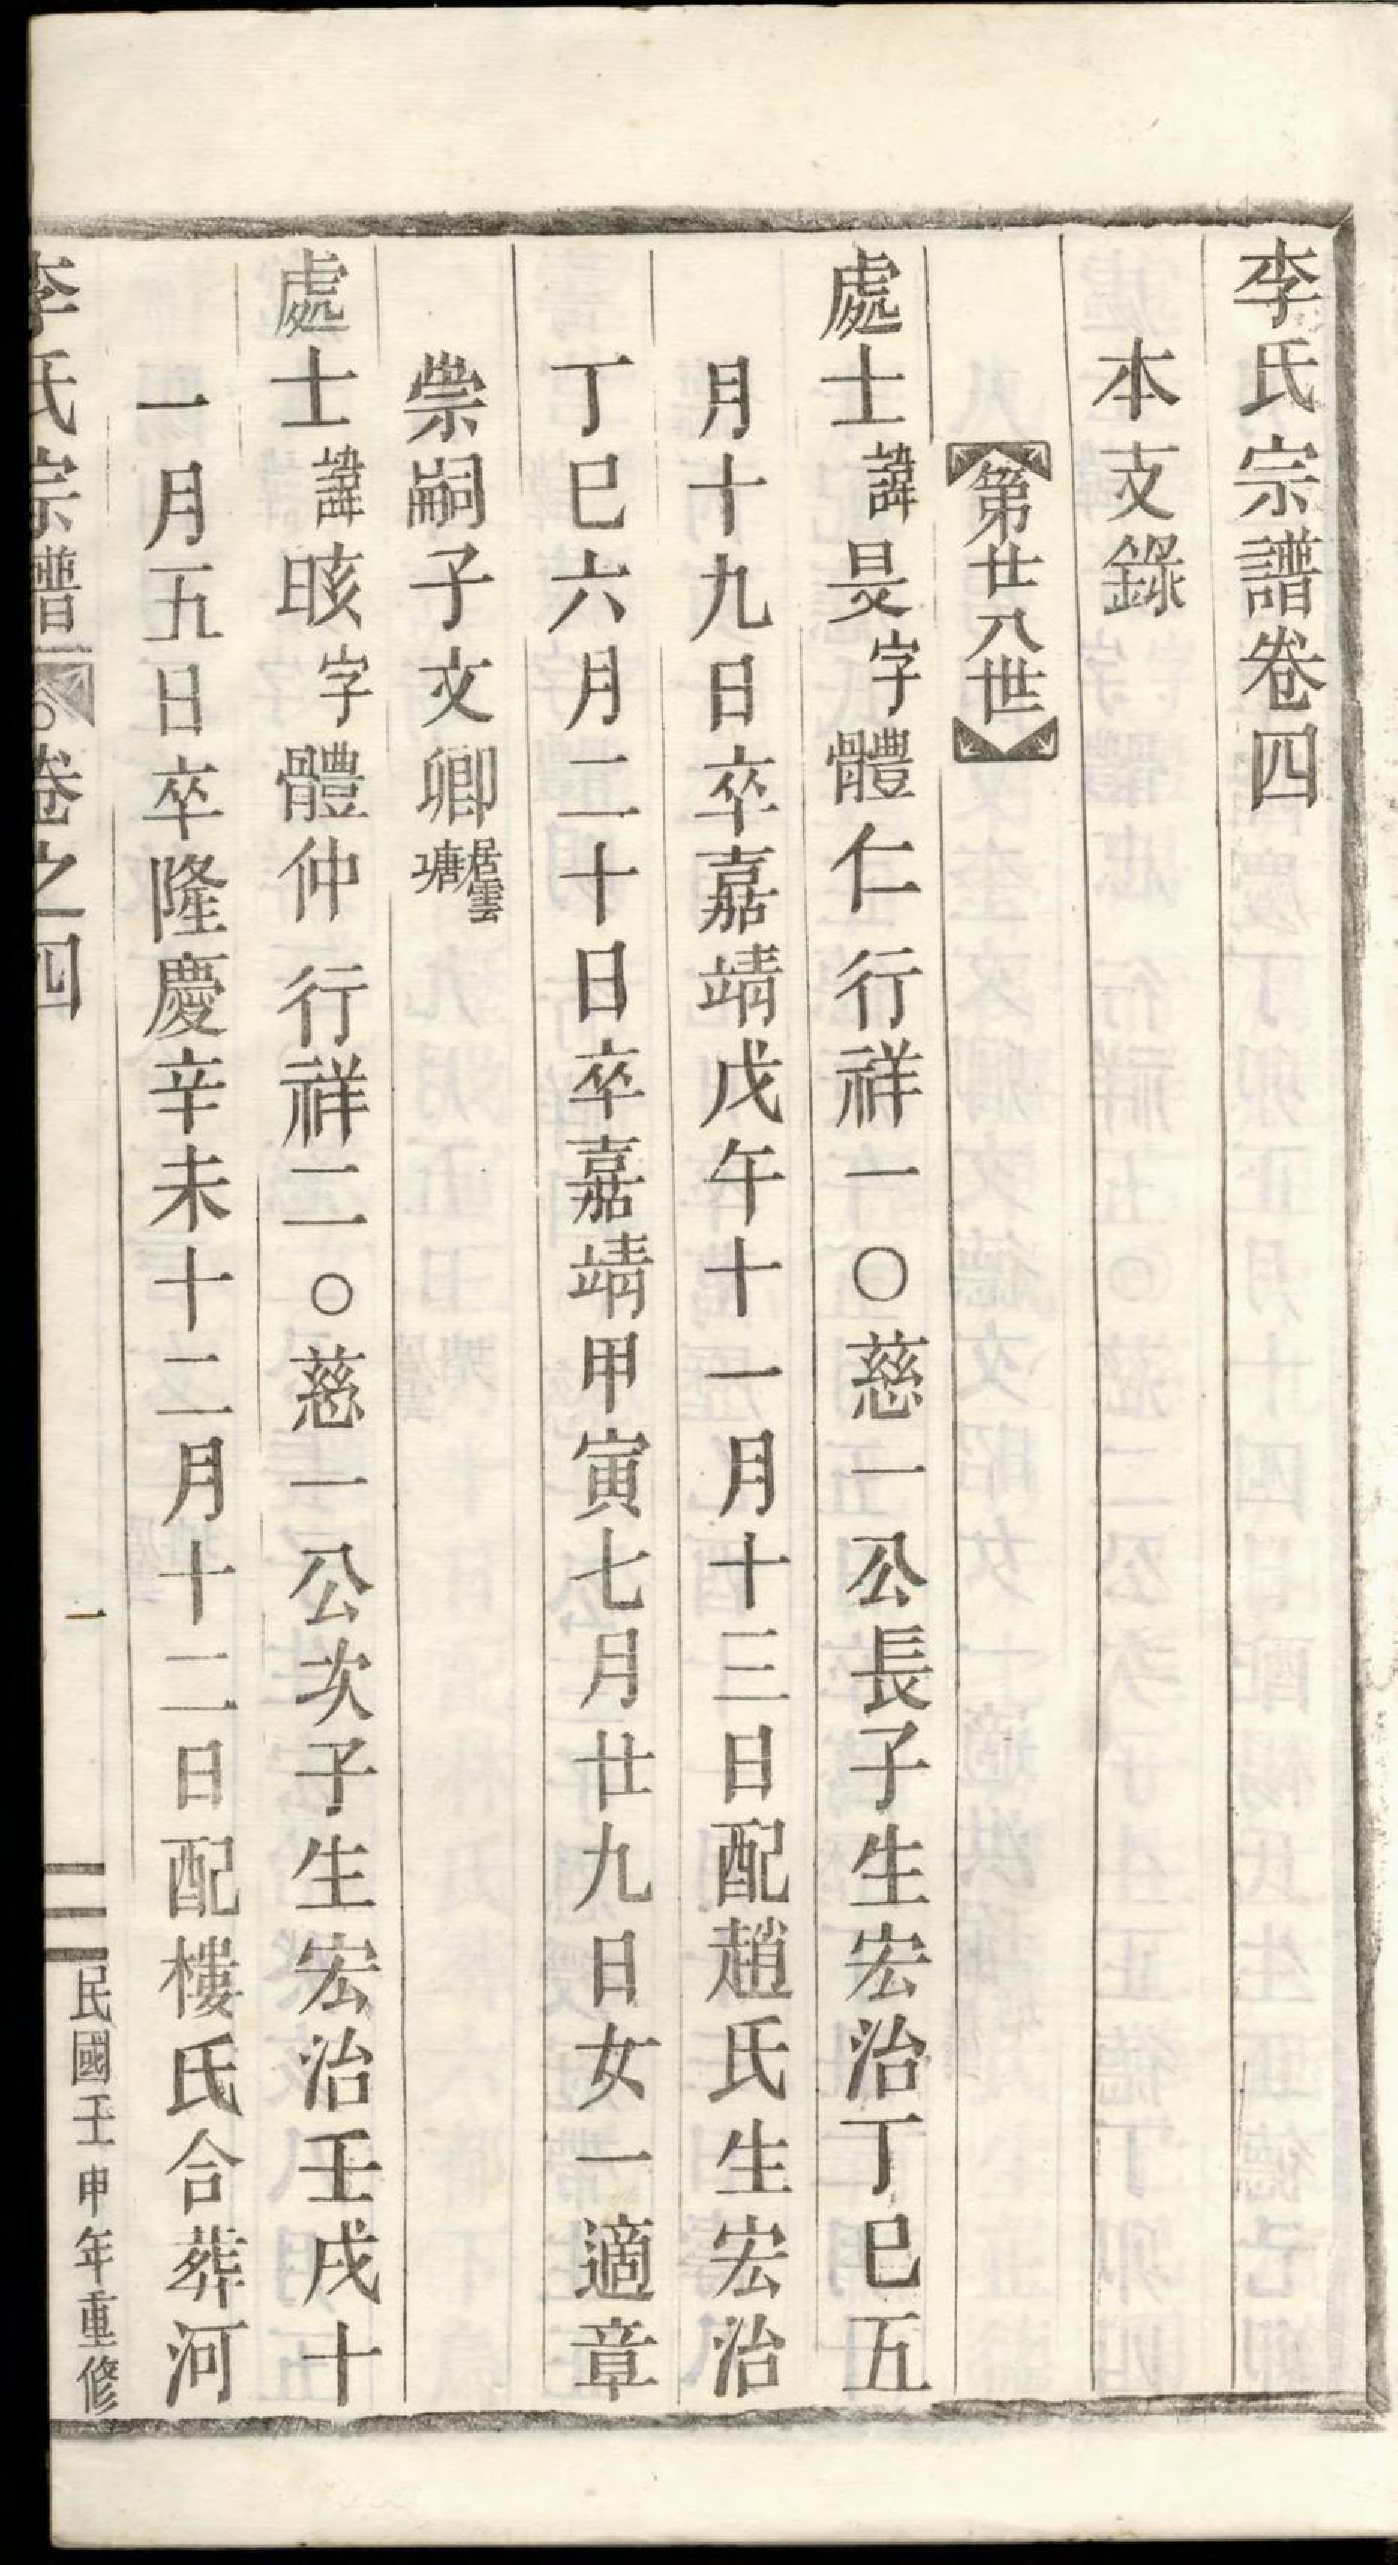 李氏宗譜卷四
本支錄
第廿八世
處士諱旻字體仁 行祥一〇慈一公長子生宏治丁巳五
月十九日卒嘉靖戊午十一月十三日配趙氏生宏治
丁巳六月二十日卒嘉靖甲寅七月廿九日女一適章
崇嗣子文卿居雲塘
處士諱晐字體仲 行祥二〇慈一公次子生宏治壬戌十
一月五日卒隆慶辛未十二月十二日配樓氏合葬河
李氏宗譜 〇卷之四 一 民國壬申年重修